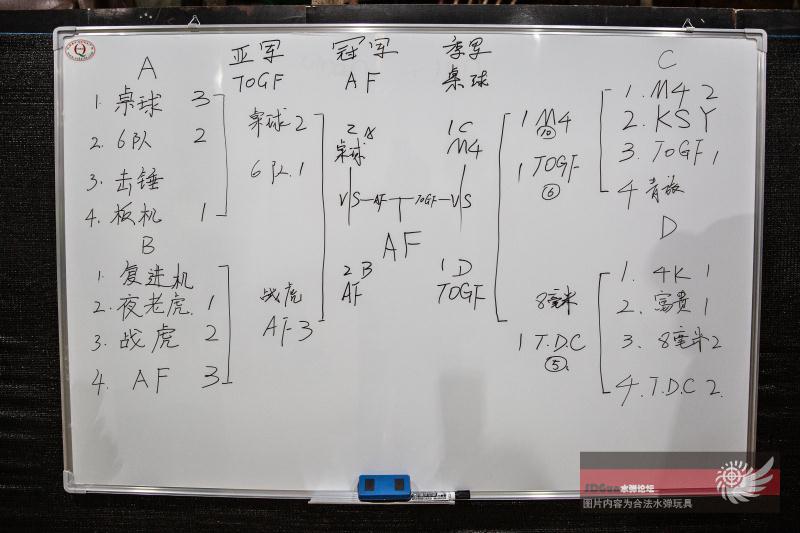 亚军 冠军 季军
TOGF AF 桌球
A
1. 桌球 3
2. 6队 2
3. 击锤
4. 板机 1
B
1. 复进机
2. 夜老虎. 1
3. 战虎 2
4. AF 3
桌球2
6队.1
战虎
AF3
桌球
V/S—AF
TOGF—V/S
AF
2B
AF
1C
M4
1D
TOGF
1 M4
⑩
1 TOGF
⑥
8毫米
1 T.D.C
⑤
C
1. M4 2
2. KSY
3. TOGF 1
4
D
1. 4K 1
2. 富贵 1
3. 8毫米2
4. T.D.C 2.
水弹论坛
图片内容为合法水弹玩具